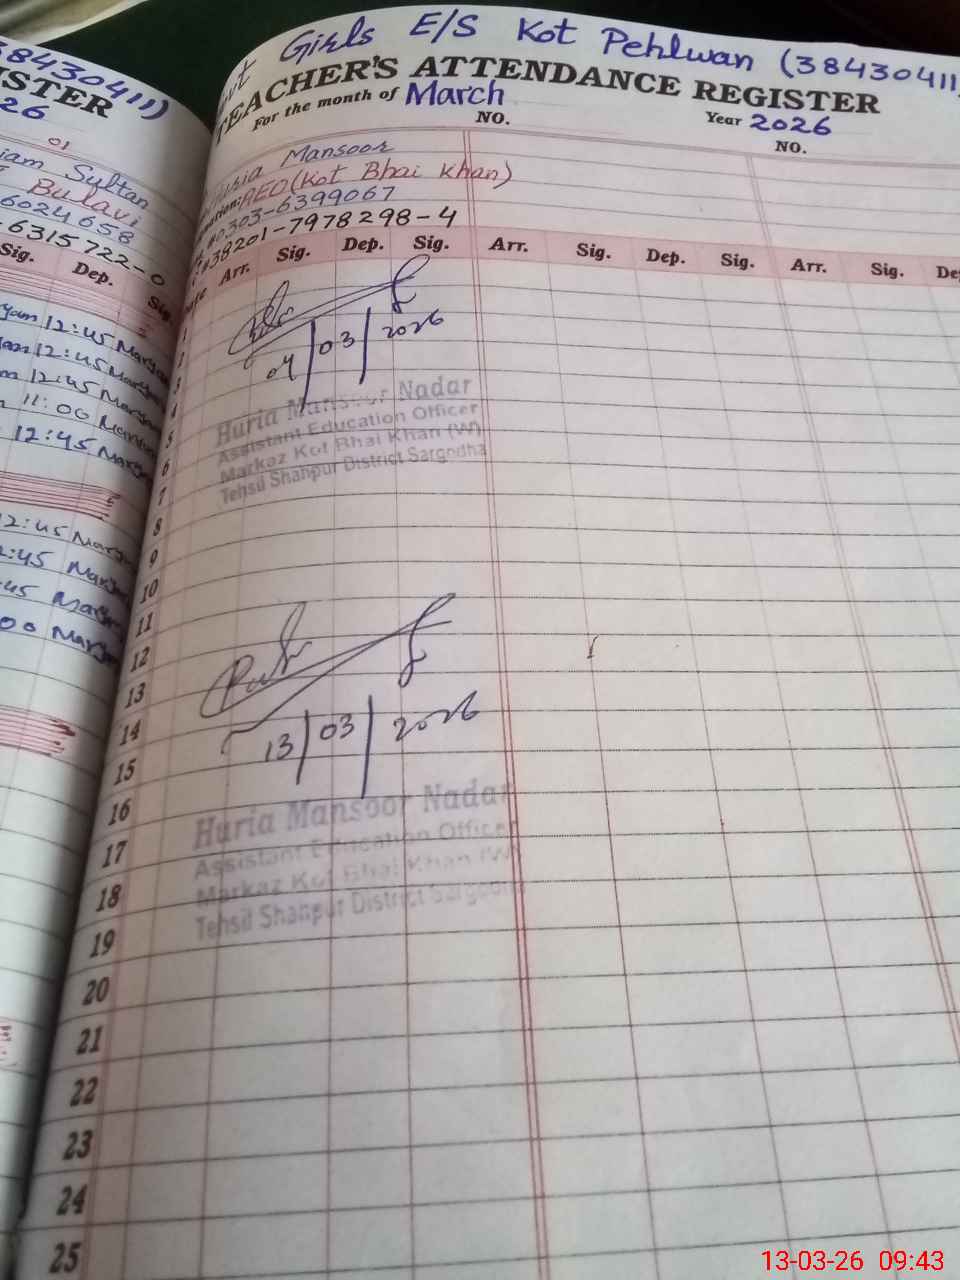 38430411)
ISTER
26
01
iam Sultan
Bulavi
6024658
6315722-0
Sig. Dep. Sig.
yam 12:45 Maryam
am 12:45 Maryam
m 12:45 Maryam
11:00 Maryam
12:45 Maryam
12:45 Maryam
2:45 Maryam
45 Maryam
00 Maryam
Girls E/S Kot Pehlwan (38430411)
TEACHER'S ATTENDANCE REGISTER
For the month of March Year 2026
NO. NO.
Mansoor
AEO (Kot Bhai Khan)
0303-6399067
38201-7978298-4
Arr. Sig. Dep. Sig. Arr. Sig. Dep. Sig. Arr. Sig. De
1
2
3
04/03/2026
4
Huria Mansoor Nadar
5
Assistant Education Officer
6
Markaz Kot Bhai Khan (W)
7
Tehsil Shahpur District Sargodha
8
9
10
11
12
13
14
13/03/2026
15
16
Huria Mansoor Nadar
17
Assistant Education Officer
18
Markaz Kot Bhai Khan (W)
19
Tehsil Shahpur District Sargodha
20
21
22
23
24
25
13-03-26 09:43